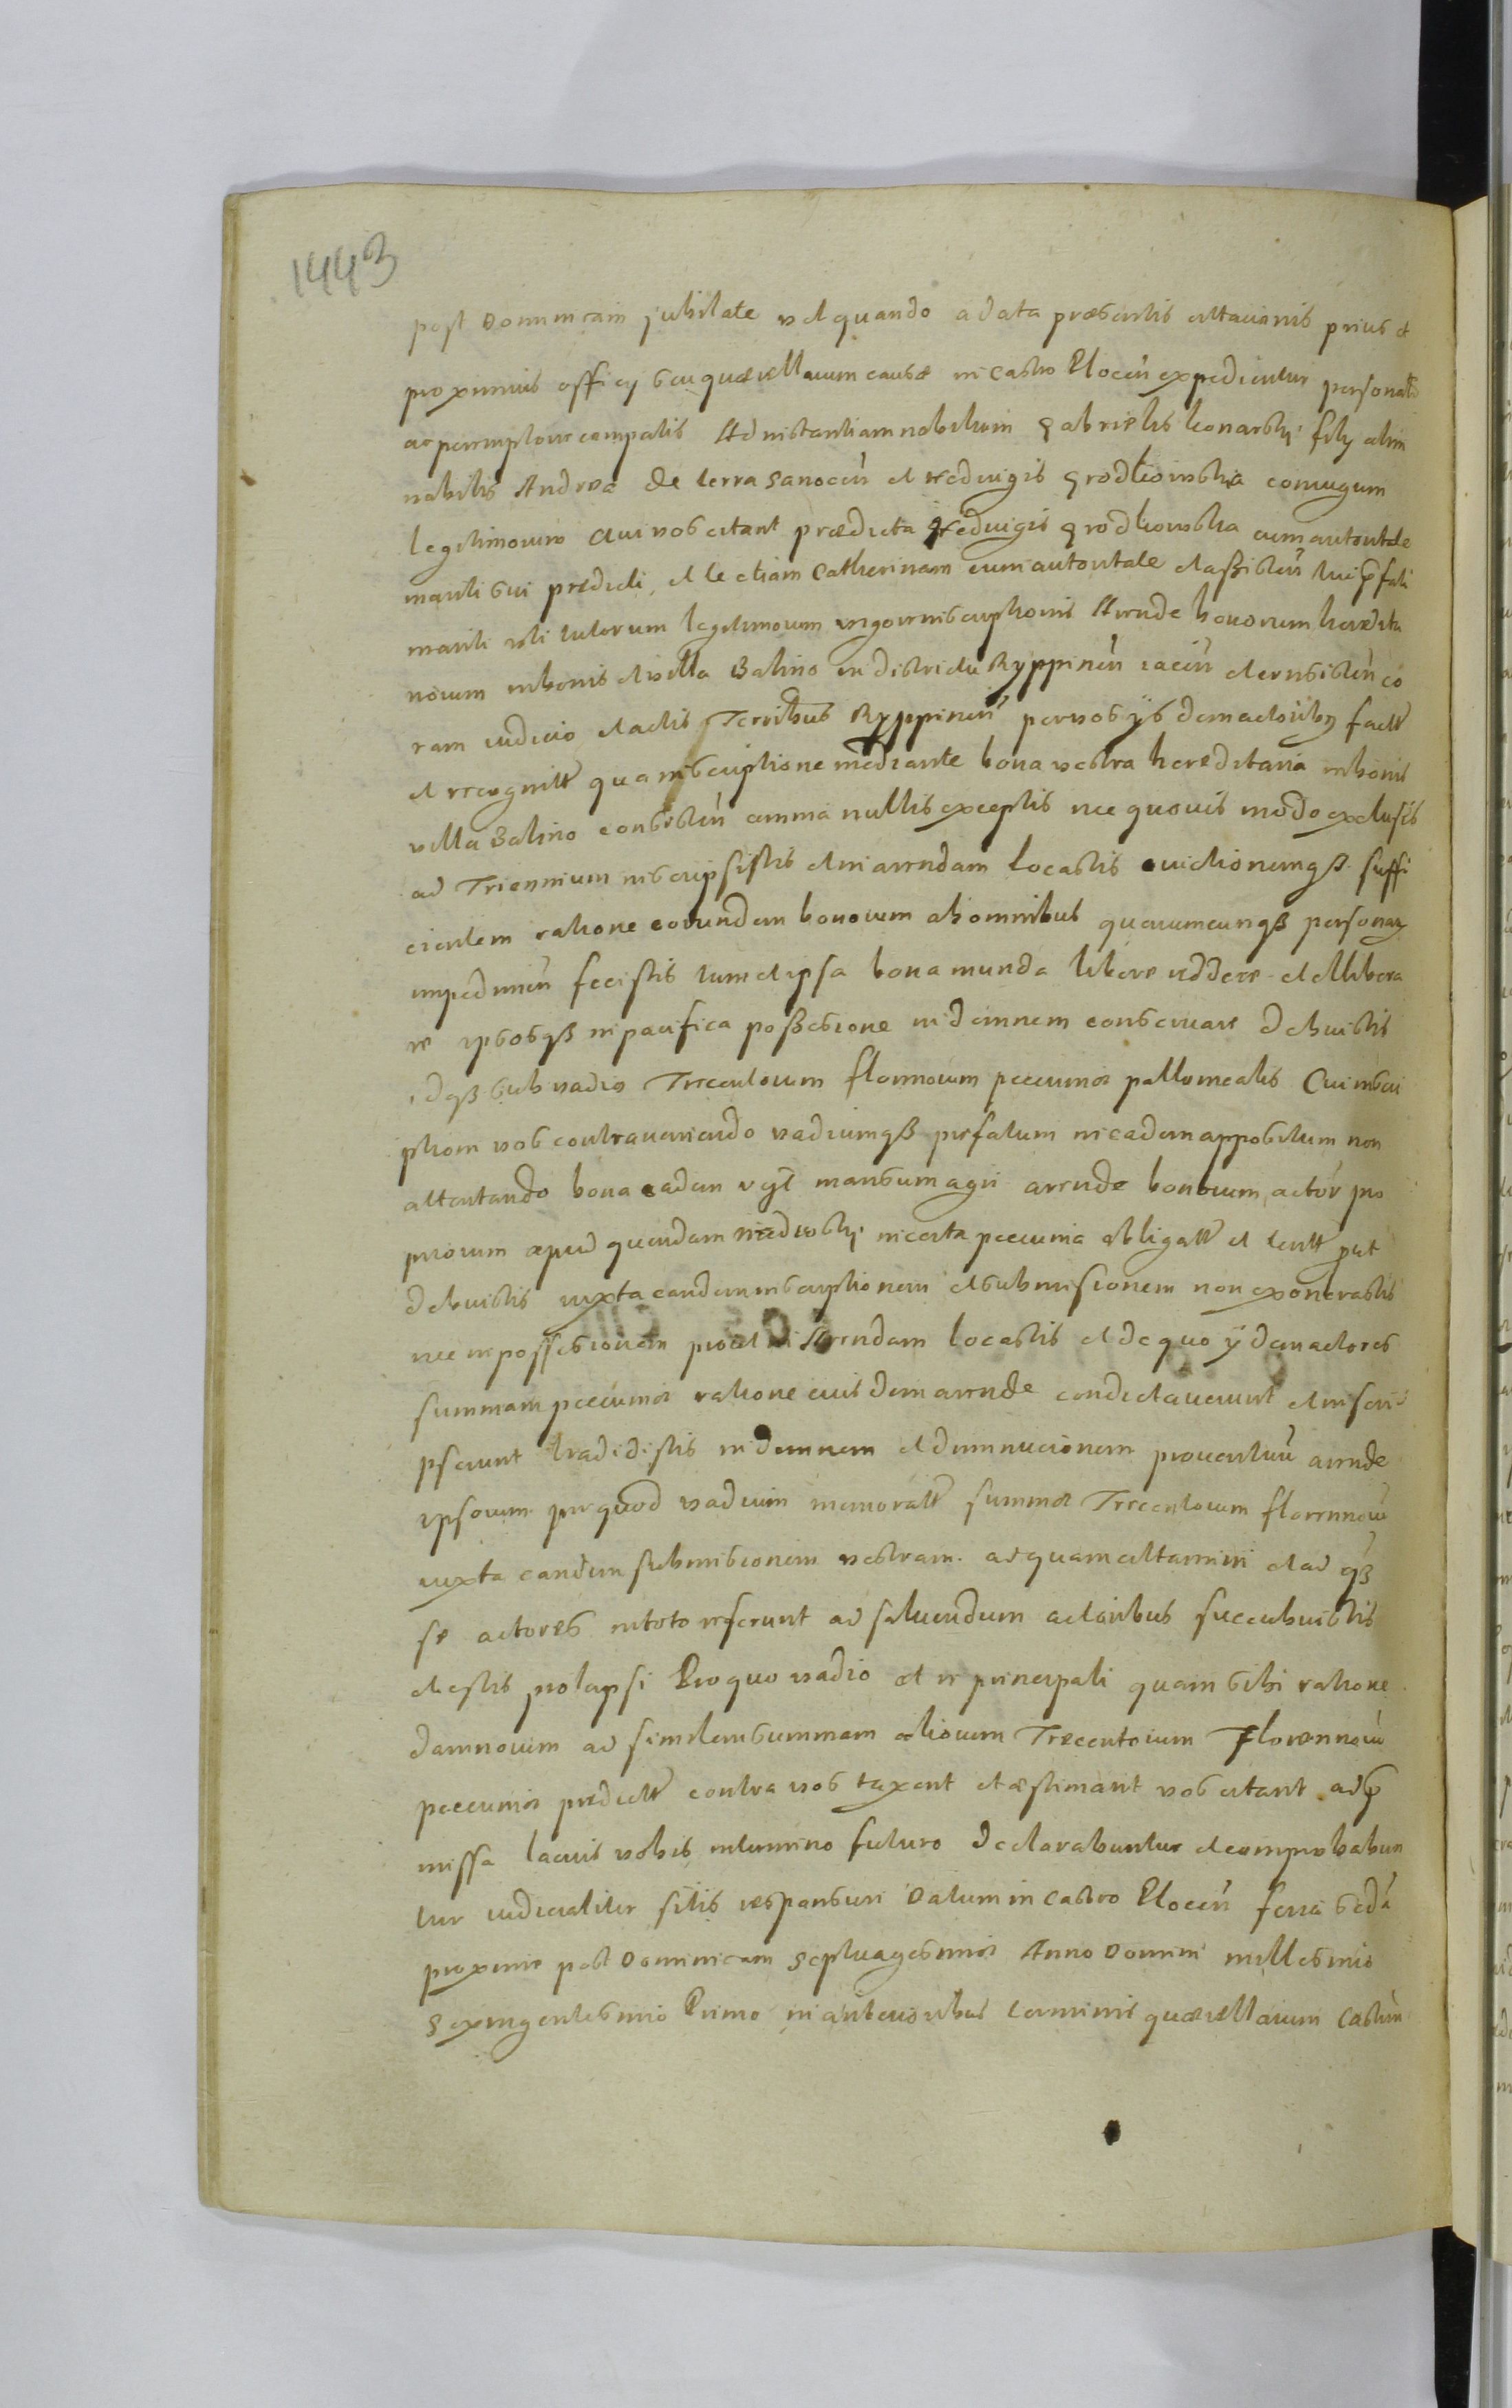 1443
post Dominicam jubilate vel quando a data præsentis cittacionis prius et
proximius officij seu quærellarum causæ in Castro Plocen expedientur personalr
ac peremptorie compatis Ad instantiam nobilium Gabrielis konarsky filij olim
nobilis Andreæ de terra Sanocen et Hedvigis Grodkowska coniugum
legitimorum Qui vos citant prædicta Hedvigis Grodkowska cum autoritate
mariti sui predicti, et te etiam Catherinam cum autoritate et assisten tui pfati
mariti uti tutorum legitimorum vigore inscriptionis Arende bonorum hæredita
riorum in bonis et villa Balino in districtu Ryppinen iacen et exnsisten co
ram iudicio et actis Terribus Ryppinen per vos ijsdem actoribq factæ
et recognitæ qua inscriptione mediante bona vestra hereditaria in bonis
villa Balino consisten omnia nullis exceptis nec quovis modo exclusis
ad Triennium inscripsistis et in arendam locastis evictionemqß suffi
cientem ratione eorundem bonorum ab omnibus quarumcunqß personarz
impedimen fecistis tum et ipsa bona munda libere reddere et ellibera
re ipsosqß in pacifica poßesione indemnem conservare debuistis
idqß sub vadio Trecentorum florenorum pecuniæ pollonicalis Cui inscri
ptioni vos contraveniendo vadiumqß prefatum in eadem appositum non
attentando bona eadem vygt mansum agri arende bonorum, actor pro
priorum apud quendam in certa pecunia obligatæ et tentæ put
debuistis iuxta eandem inscriptionem et submisionem non exonerastis
nec in possesionem prout in Arendam locastis et de quo ijdem actores
summam pecuniæ ratione eiusdem arende condictaverunt et inscri-
pserunt tradidistis indemnem et diminucionem proventuũ arende
ipsorum per quod vadium memoratæ summæ Trecentorum florennorũ
iuxta eandem submissionem vestram. ad quam cittamini et ad qß
se actores in toto referunt ad solvendum actoribus succubuistis
et estis prolapsi Pro quo vadio et re principali quam sibi ratione
damnorum ad similem summam aliorum Trecentorum Florennorũ
pecuniæ predictæ contra vos taxant et æstimant vos citant adp
missa lacius vobis in termino futuro declarabuntur et comprobabun
tur iudicialiter sitis responsuri Datum in Castro Plocen feria Scda
proxime post Dominicam Septuagesimæ Anno Domini millesimo
Sexingentesimo Primo in anterioribus terminis quærellarum Castren